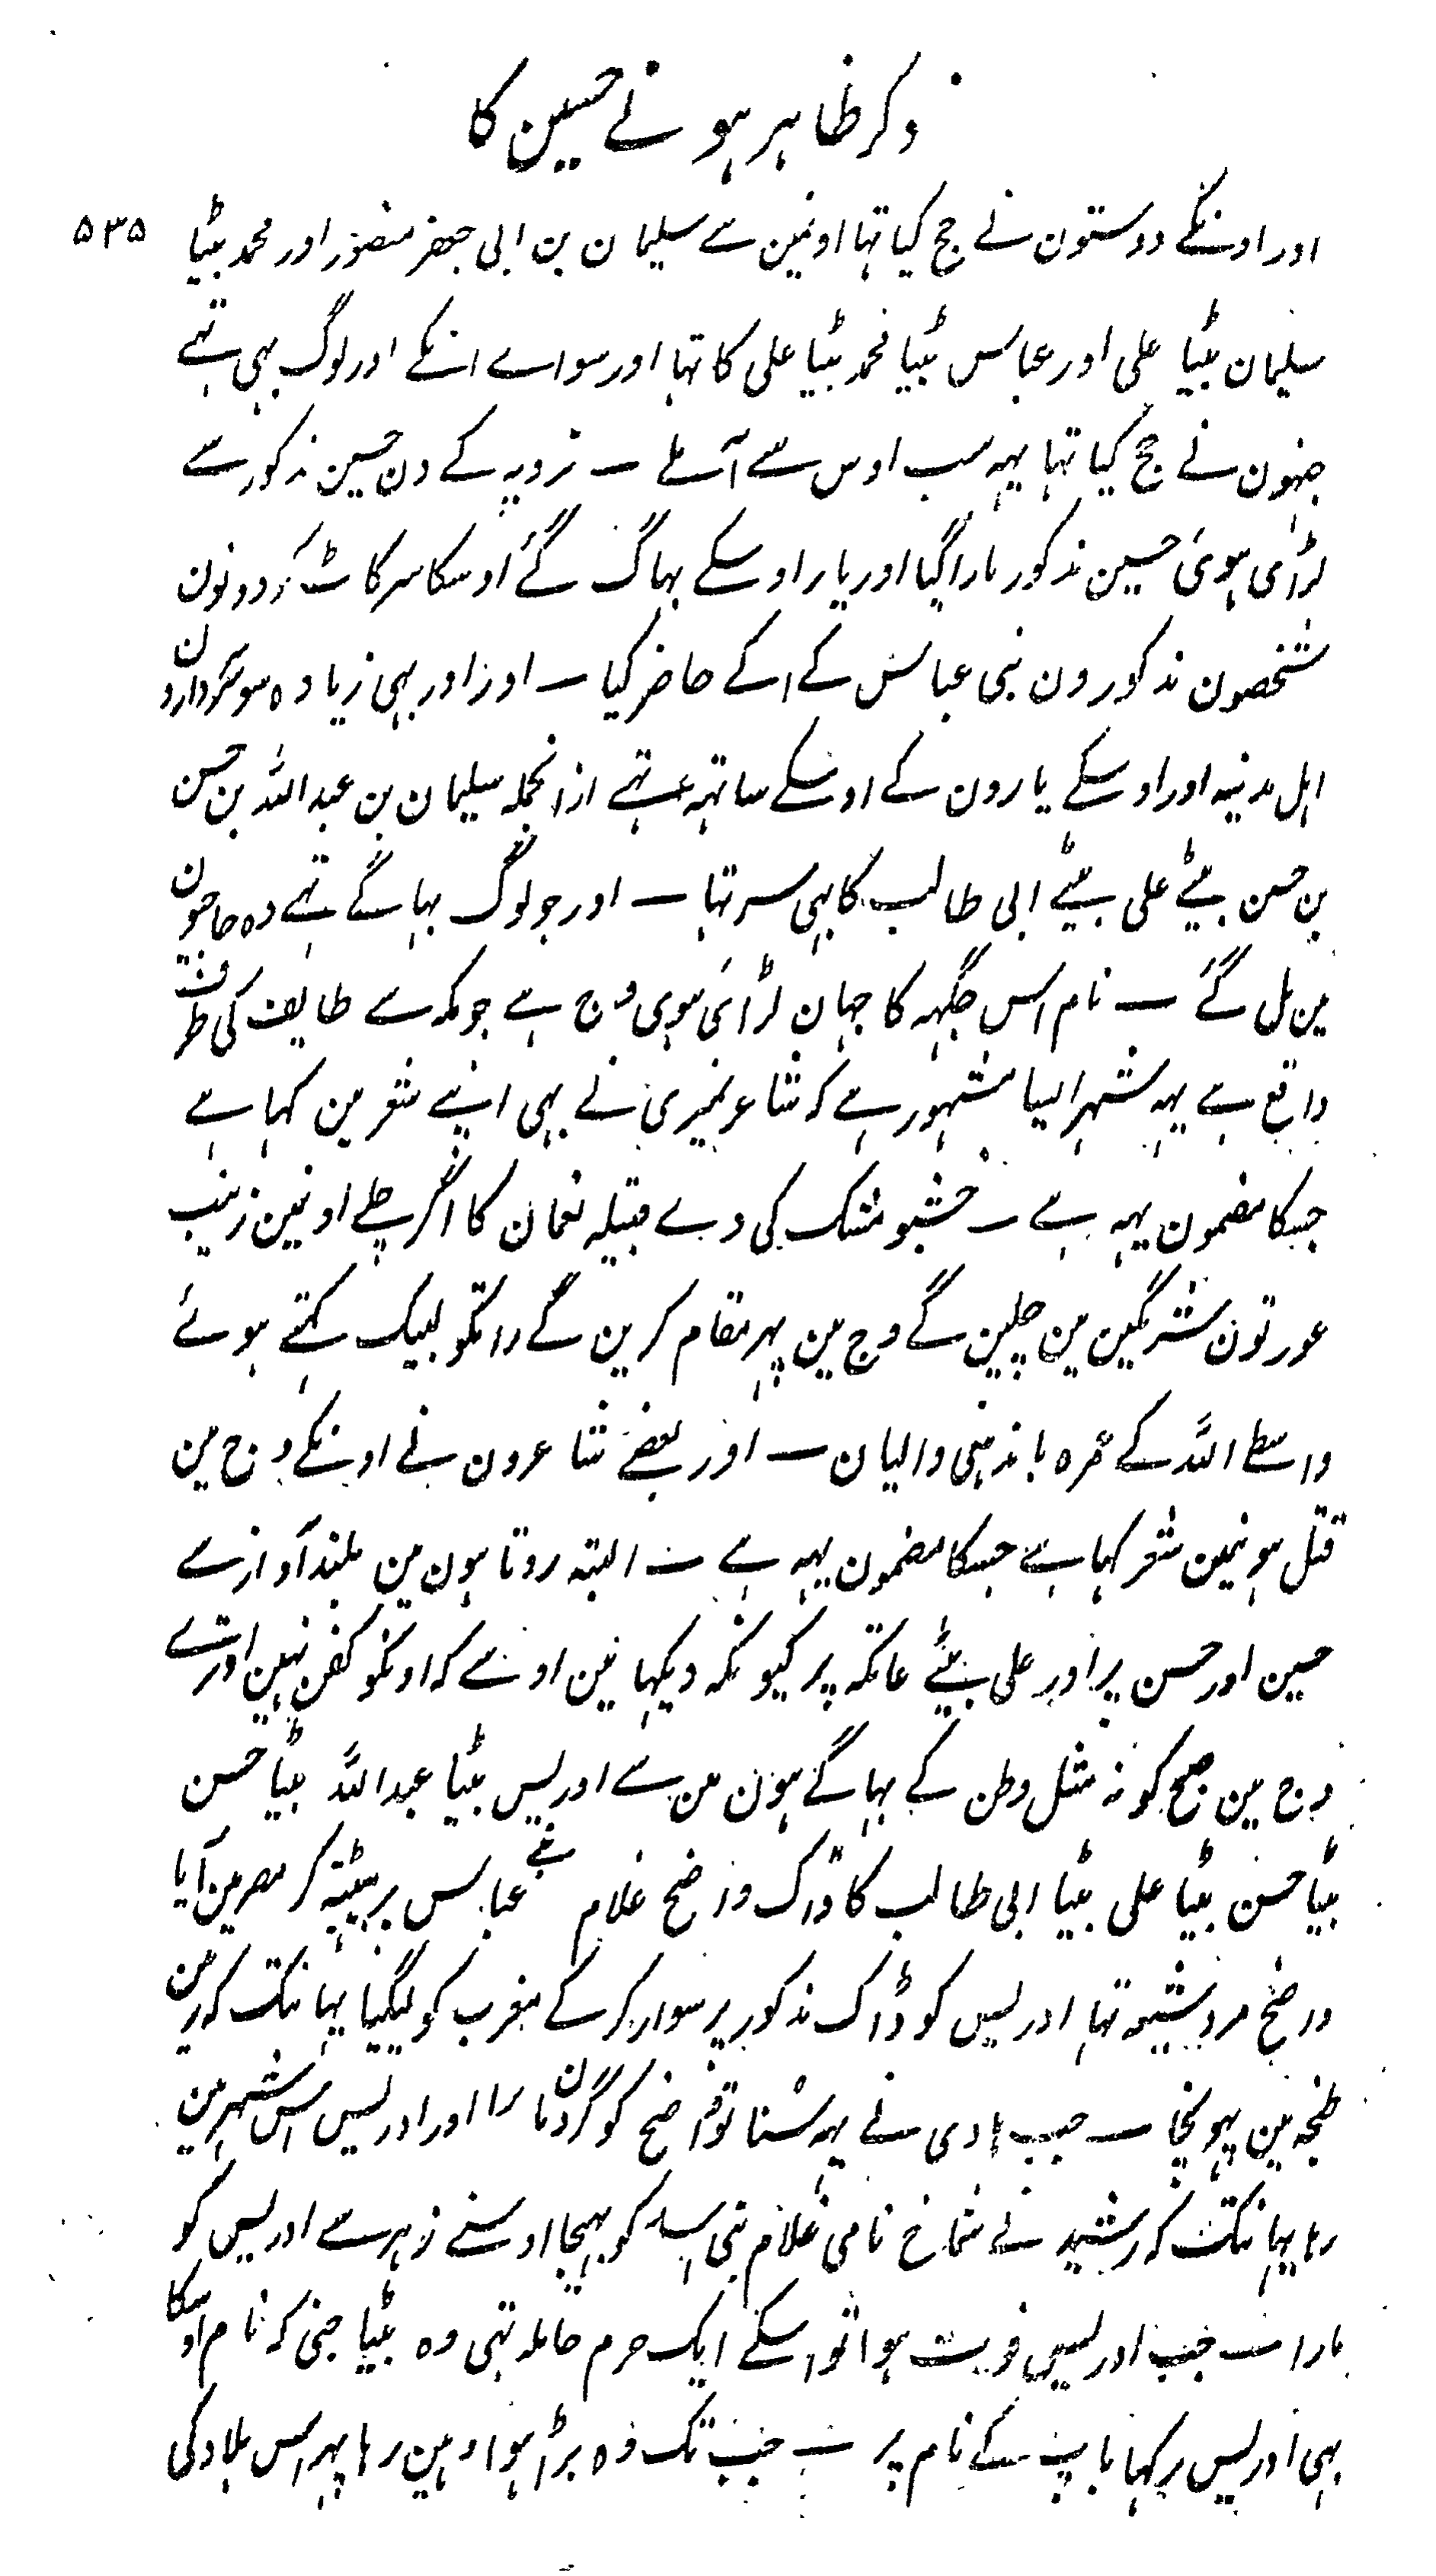 ذکر ظاہر ہونے حسین کا
۵۳۵
اور اونکے دوستون نے حج کیا تہا اونمین سے سلیمان بن ابی جعفر منصور اور محمد بیٹا
سلیمان بیٹا علی اور عباس بیٹا محمد بیٹا علی کا تہا اور سواے انکے اور لوگ بہی تہے
جنہون نے حج کیا تہا یہہ سب اوس سے آملے ــ ترویہ کے دن حسین مذکور سے
لڑائی ہوئی حسین مذکور مارا گیا اور یار اوسکے بہاگ گئے اوسکا سر کاٹ کر دونون
شخصون مذکورون بنی عباس کے اگے حاضر کیا ــ اور اور بہی زیادہ سو سے
اہل مدینہ اور اوسکے یارون کے اوسکے ساتہہ تہے ازانجملہ سلیمان بن عبد اللہ بن حسن
بن حسن بیٹے علی بیٹے ابی طالب کا بہی سر تہا ــ اور جو لوگ بہاگے تہے وہ حاجیون
مین مل گئے ــ نام اس جگہہ کا جہان لڑائی ہوی وج ہے جو مکہ سے طایف کی طرف
واقع ہے یہہ شہر ایسا مشہور ہے کہ شاعر نمیری نے بہی اپنے شعر مین کہا ہے
جسکا مضمون یہہ ہے ــ خشبو مشک کی دے قبیلہ نعمان کا اگر چلے اونمین زینب
عورتون شرمگین مین چلین گے وج مین پہر مقام کرین گے راتکو لبیک کہتے ہوئے
واسطے اللہ کے عمرہ باندہنی والیان ــ اور بعضے شاعرون نے اونکے وج مین
قتل ہونیمین شعر کہا ہے جسکا مضمون یہہ ہے ــ البتہ روتا ہون مین بلند آواز سے
حسین اور حسن پر اور علی بیٹے عاتکہ پر کیونکہ دیکہا مین اونسے کہ اونکو کفن نہین اورترے
وج مین صبح کو نہ مثل وطن کے بہاگے ہون مین سے ادریس بیٹا عبد اللہ بیٹا حسن
بیٹا حسن بیٹا علی بیٹا ابی طالب کا ڈاک واضح غلام بنے عباس پر بیٹہہ کر مصر مین آیا
واضح مرد شیعہ تہا ادریس کو ڈاک مذکور پر سوار کر کے مغرب کو لیگیا یہانتک کہ زمین
طنجہ مین پہونچا ــ جب ہادی نے یہہ سنا تو واضح کو گردن مارا اور ادریس اس شہر مین
رہا یہانتک کہ رشید نے شماخ نامی غلام بنی اسد کو بہیجا اوسنے زہر سے ادریس کو
مارا ــ جب ادریس فوت ہوا تو اسکے ایک حرم حاملہ تہی وہ بیٹا جنی کہ نام اوسکا
بہی ادریس رکہا باپ کے نام پر ــ جب تک وہ بڑا ہوا وہین رہا پہر اس بلاد کی